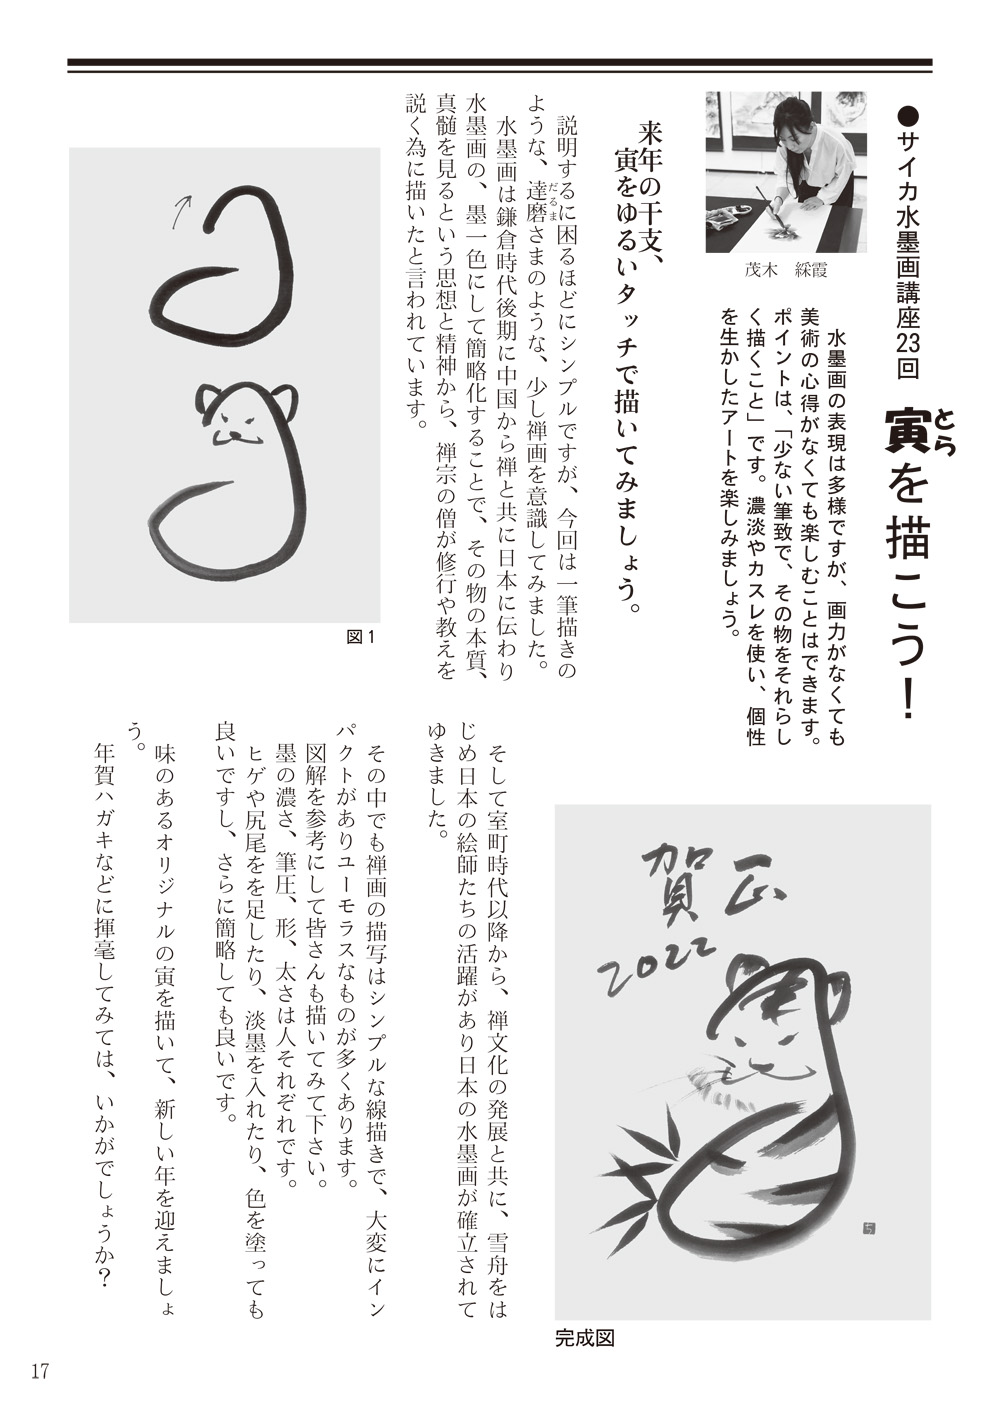 ●サイカ水墨画講座23回
寅を描こう！
とら
茂木　綵霞
水墨画の表現は多様ですが、画力がなくても
美術の心得がなくても楽しむことはできます。
ポイントは、「少ない筆致で、その物をそれらし
く描くこと」です。濃淡やカスレを使い、個性
を生かしたアートを楽しみましょう。
来年の干支、
寅をゆるいタッチで描いてみましょう。
説明するに困るほどにシンプルですが、今回は一筆描きの
ような、達磨さまのような、少し禅画を意識してみました。
だるま
水墨画は鎌倉時代後期に中国から禅と共に日本に伝わり
水墨画の、墨一色にして簡略化することで、その物の本質、
真髄を見るという思想と精神から、禅宗の僧が修行や教えを
説く為に描いたと言われています。
図1
そして室町時代以降から、禅文化の発展と共に、雪舟をは
じめ日本の絵師たちの活躍があり日本の水墨画が確立されて
ゆきました。
その中でも禅画の描写はシンプルな線描きで、大変にイン
パクトがありユーモラスなものが多くあります。
図解を参考にして皆さんも描いてみて下さい。
墨の濃さ、筆圧、形、太さは人それぞれです。
ヒゲや尻尾をを足したり、淡墨を入れたり、色を塗っても
良いですし、さらに簡略しても良いです。
味のあるオリジナルの寅を描いて、新しい年を迎えましょ
う。
年賀ハガキなどに揮毫してみては、いかがでしょうか？
正
賀
2022
ち
完成図
17